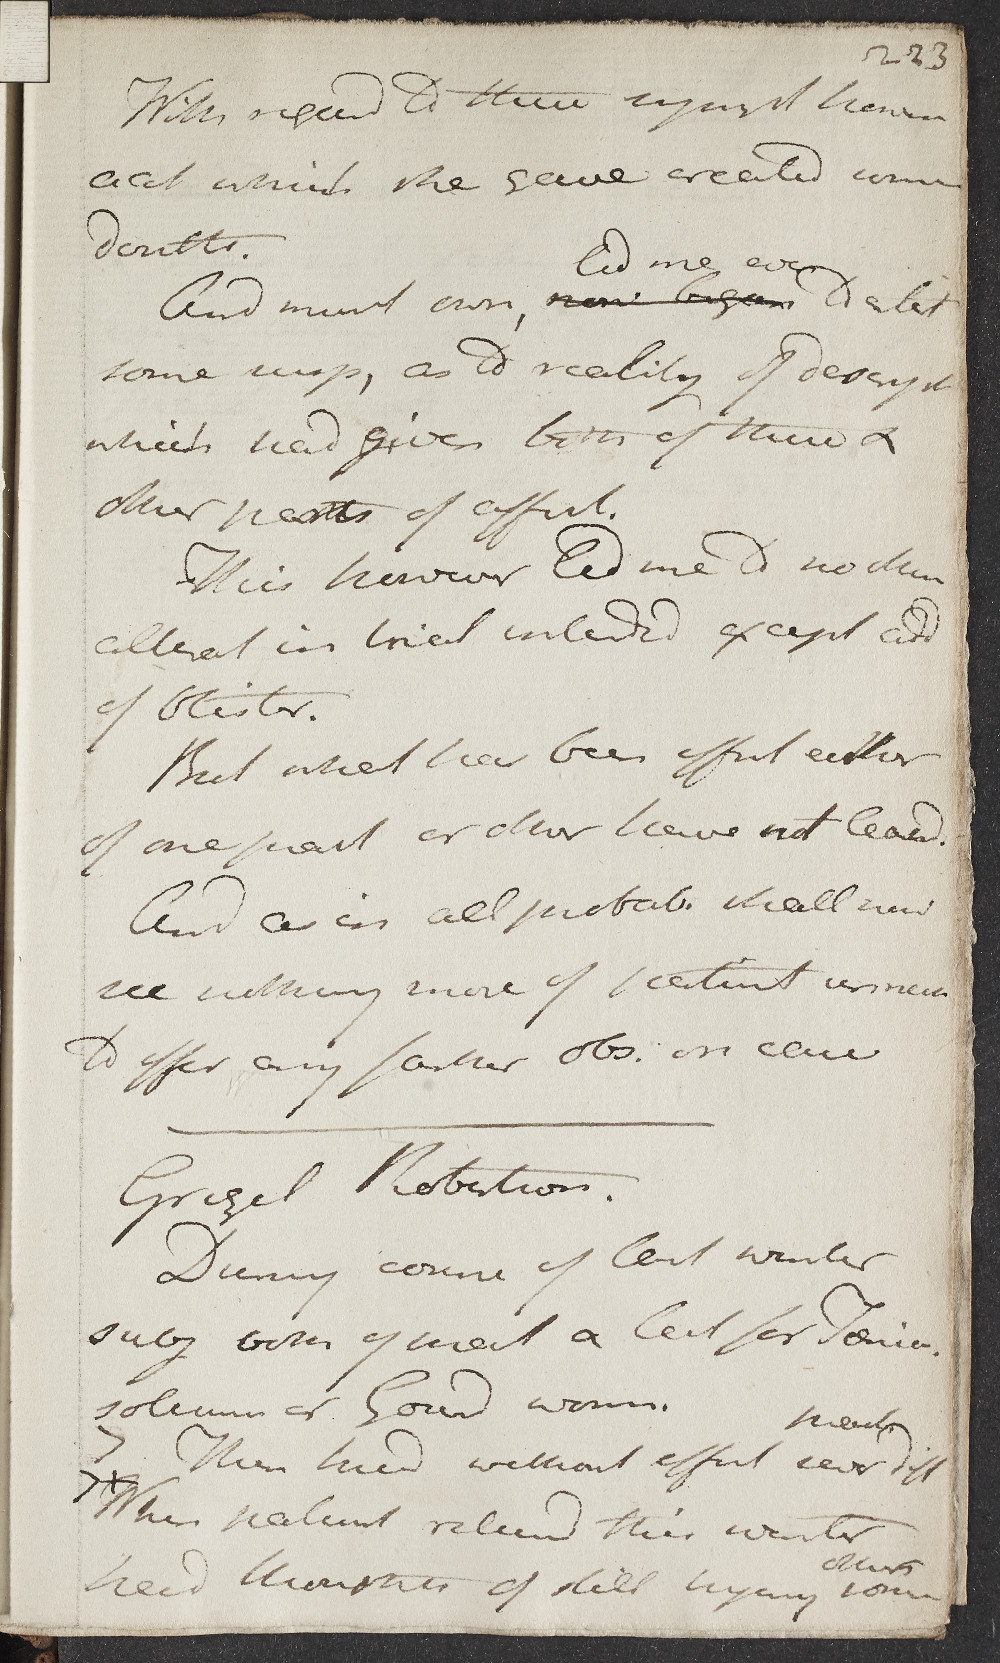 223
With regard to these sympt however
act which she gave created some
doubts.
led me even
And must own, now began to enlist
some susp, as to reality of descript
which had given both of these &
other parts of affect.
This however led me to no other
alterat in trial intended except add
of blister.
But what has been effect either
of one part or other have not learnd.
And as in all probab. shall now
see nothing more of patient
to offer any farther obs. on case
Grizel Robertson.
During course of last winter
subj both of great & last for Taenia.
solium or Gourd worm.
pract.
Then tried without effect sever diff
When patient returnd this winter
others
had thoughts of still trying some